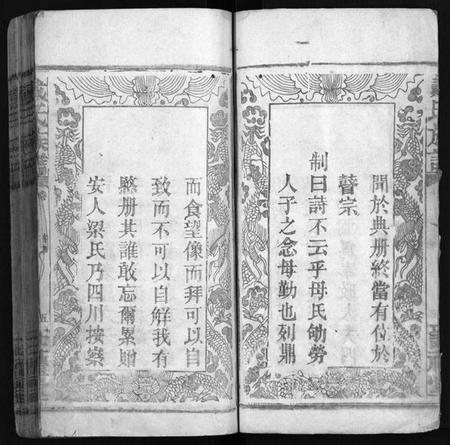 聞於典册終當有位於
瞽宗
制曰詩不云乎母氏劬勞
人子之念母勤也列鼎
而食望像而拜可以自
致而不可以自解我有
愍册其誰敢忘爾累贈
安人梁氏乃四川按察